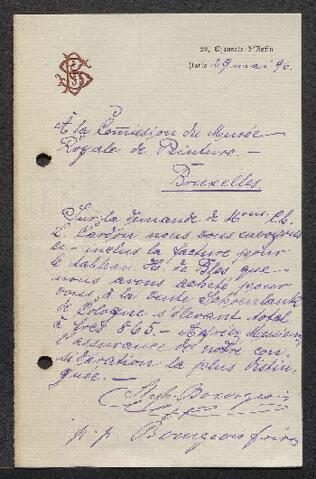 20, Chaussée-d'Antin
Paris 29 mai 96.
À la Comission du Musée
Royale de Peinture. —
Bruxelles
Sur la demande de Mons. Ch.
L. Cardon nous vous envoyons
ci-inclus la facture pour
le tableau H. de Bles que
nous avons acheté pour
vous à la vente
de Cologne s'élevant total
à frcs 865.— Agréez Messieurs
l'assurance de notre con-
sidération la plus distin-
guée. —
Bourgeois
p. p. Bourgeois frères